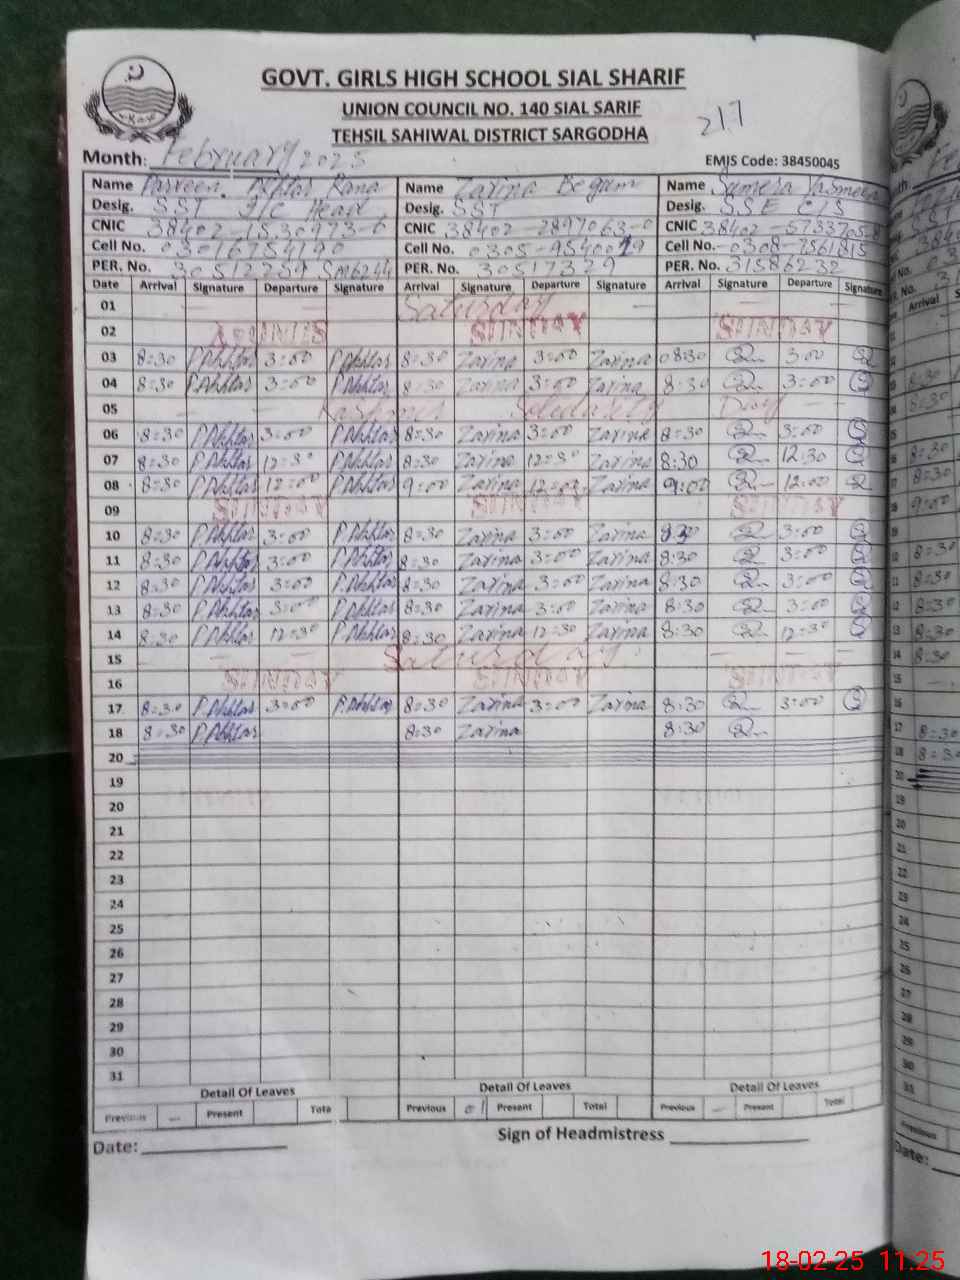 GOVT. GIRLS HIGH SCHOOL SIAL SHARIF
UNION COUNCIL NO. 140 SIAL SARIF
TEHSIL SAHIWAL DISTRICT SARGODHA
217
Month: February 2025
EMIS Code: 38450045
Name Parveen Akhtar Rana Name Zarina Begum Name Sumera Yasmeen
Desig. SST I/C Head Desig. SST Desig. SSE C/S
CNIC 38402-1530973-6 CNIC 38402-2897063-0 CNIC 38402-5733705-8
Cell No. 03016754190 Cell No. 0305-9540029 Cell No. 0308-7561815
PER. No. 30512259 PER. No. 30517329 PER. No. 31586232
Date Arrival Signature Departure Signature Arrival Signature Departure Signature Arrival Signature Departure Signature
01 Saturday
02 SUNDAY SUNDAY SUNDAY
03 8:30 P.Akhtar 3:00 P.Akhtar 8:30 Zarina 3:00 Zarina 08:30 3:00
04 8:30 P.Akhtar 3:00 P.Akhtar 8:30 Zarina 3:00 Zarina 8:30 3:00
05 Kashmir Solidarity Day
06 8:30 P.Akhtar 3:00 P.Akhtar 8:30 Zarina 3:00 Zarina 8:30 3:00
07 8:30 P.Akhtar 12:30 P.Akhtar 8:30 Zarina 12:30 Zarina 8:30 12:30
08 8:30 P.Akhtar 12:00 P.Akhtar 9:00 Zarina 12:00 Zarina 9:00 12:00
09 SUNDAY SUNDAY SUNDAY
10 8:30 P.Akhtar 3:00 P.Akhtar 8:30 Zarina 3:00 Zarina 8:30 3:00
11 8:30 P.Akhtar 3:00 P.Akhtar 8:30 Zarina 3:00 Zarina 8:30 3:00
12 8:30 P.Akhtar 3:00 P.Akhtar 8:30 Zarina 3:00 Zarina 8:30 3:00
13 8:30 P.Akhtar 3:00 P.Akhtar 8:30 Zarina 3:00 Zarina 8:30 3:00
14 8:30 P.Akhtar 12:30 P.Akhtar 8:30 Zarina 12:30 Zarina 8:30 12:30
15 Saturday
16 SUNDAY SUNDAY SUNDAY
17 8:30 P.Akhtar 3:00 P.Akhtar 8:30 Zarina 3:00 Zarina 8:30 3:00
18 8:30 P.Akhtar 8:30 Zarina 8:30
20
19
20
21
22
23
24
25
26
27
28
29
30
31
Detail Of Leaves Detail Of Leaves Detail Of Leaves
Previous Present Tota Previous 01 Present Total Previous Present Total
Date: Sign of Headmistress
18-02-25 11:25